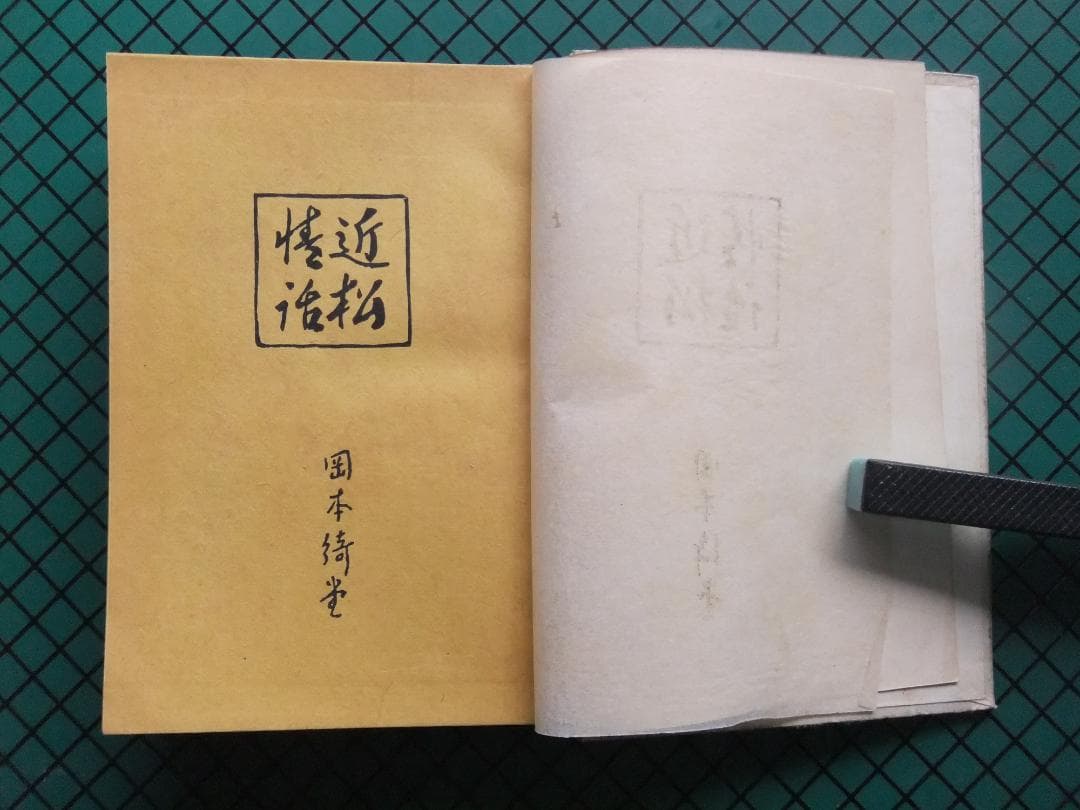 近松
情話
岡本綺堂